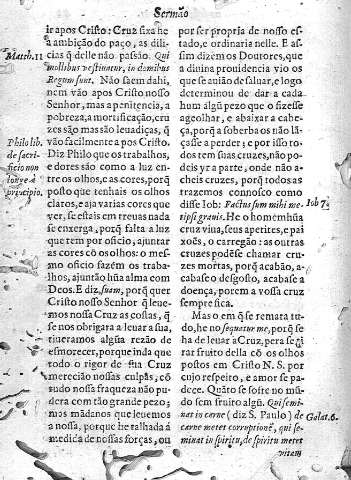 Sermão
ir apos Cristo: Cruz fixa he
a ambição do paço, as dili-
cias q̃ delle não passão. Qui
mollibus vestiuntur, in domibus
Regum sunt. Não saem dahi,
nem vão apos Cristo nosso
Senhor, mas a penitencia, a
pobreza, a mortificação, cru
zes são mas são leuadiças, q̃
vão facilmente a pos Cristo.
Diz Philo que os trabalhos,
e dores são como a luz en-
tre os olhos, e as cores, porq̃
posto que tenhais os olhos
claros, e aja varias cores que
ver, se estais em treuas nada
se enxerga, porq̃ falta a luz
que tem por oficio, ajuntar
as cores cõ os olhos: o mes-
mo oficio fazẽm os traba-
lhos, ajuntão hũa alma com
Deos. E diz, suam, porq̃ quer
Cristo nosso Senhor q̃ leue-
mos nossa Cruz as costas, q̃
se nos obrigara a leuar a sua,
tiueramos algũa rezão de
esmorecer, porque inda que
todo o rigor de sua Cruz
merecião nossas culpas, cõ
tudo nossa fraqueza não pu-
dera com tão grande pezo;
mas mãdanos que leuemos
a nossa, porque he talhada à
medida de nossas forças, ou
Matth. 11
Philo lib.
de sacri-
ficio non
longe à
principio.
por ser propria de nosso es-
tado, e ordinaria nelle. E as-
sim dizem os Doutores, que
a diuina prouidencia vio os
que se auião de saluar, e logo
determinou de dar a cada
hum algũ pezo que o fizesse
ageolhar, e abaixar a cabe-
ça, porq̃ a soberba os não lã-
çasse a perder; e por isso to-
dos tem suas cruzes, não po-
deis yr a parte, onde não a-
cheis cruzes, porq̃ todos as
trazemos connosco como
disse Iob: Factus sum mihi me-
tipsi grauis. He o homem hũa
cruz viua, seus apetites, e pai
xoẽs, o carregão: as outras
cruzes podẽse chamar cru-
zes mortas, porq̃ acabão, a-
cabase o desgosto, acabase a
doença, porem a vossa cruz
sempre fica.
Mas o em q̃ se remata tu-
do, he no sequatur me, porq̃ se
ha de leuar a Cruz, pera se ti-
rar fruito della cõ os olhos
postos em Cristo N. S. por
cujo respeito, e amor se pa-
dece. Quãto se sofre no mũ-
do sem fruito algũ. Qui semi-
nat in carne (diz S. Paulo) de
carne metet corruptionẽ, qui se-
minat in spiritu, de spiritu metet
vitam
Iob 7.
Galat. 6.